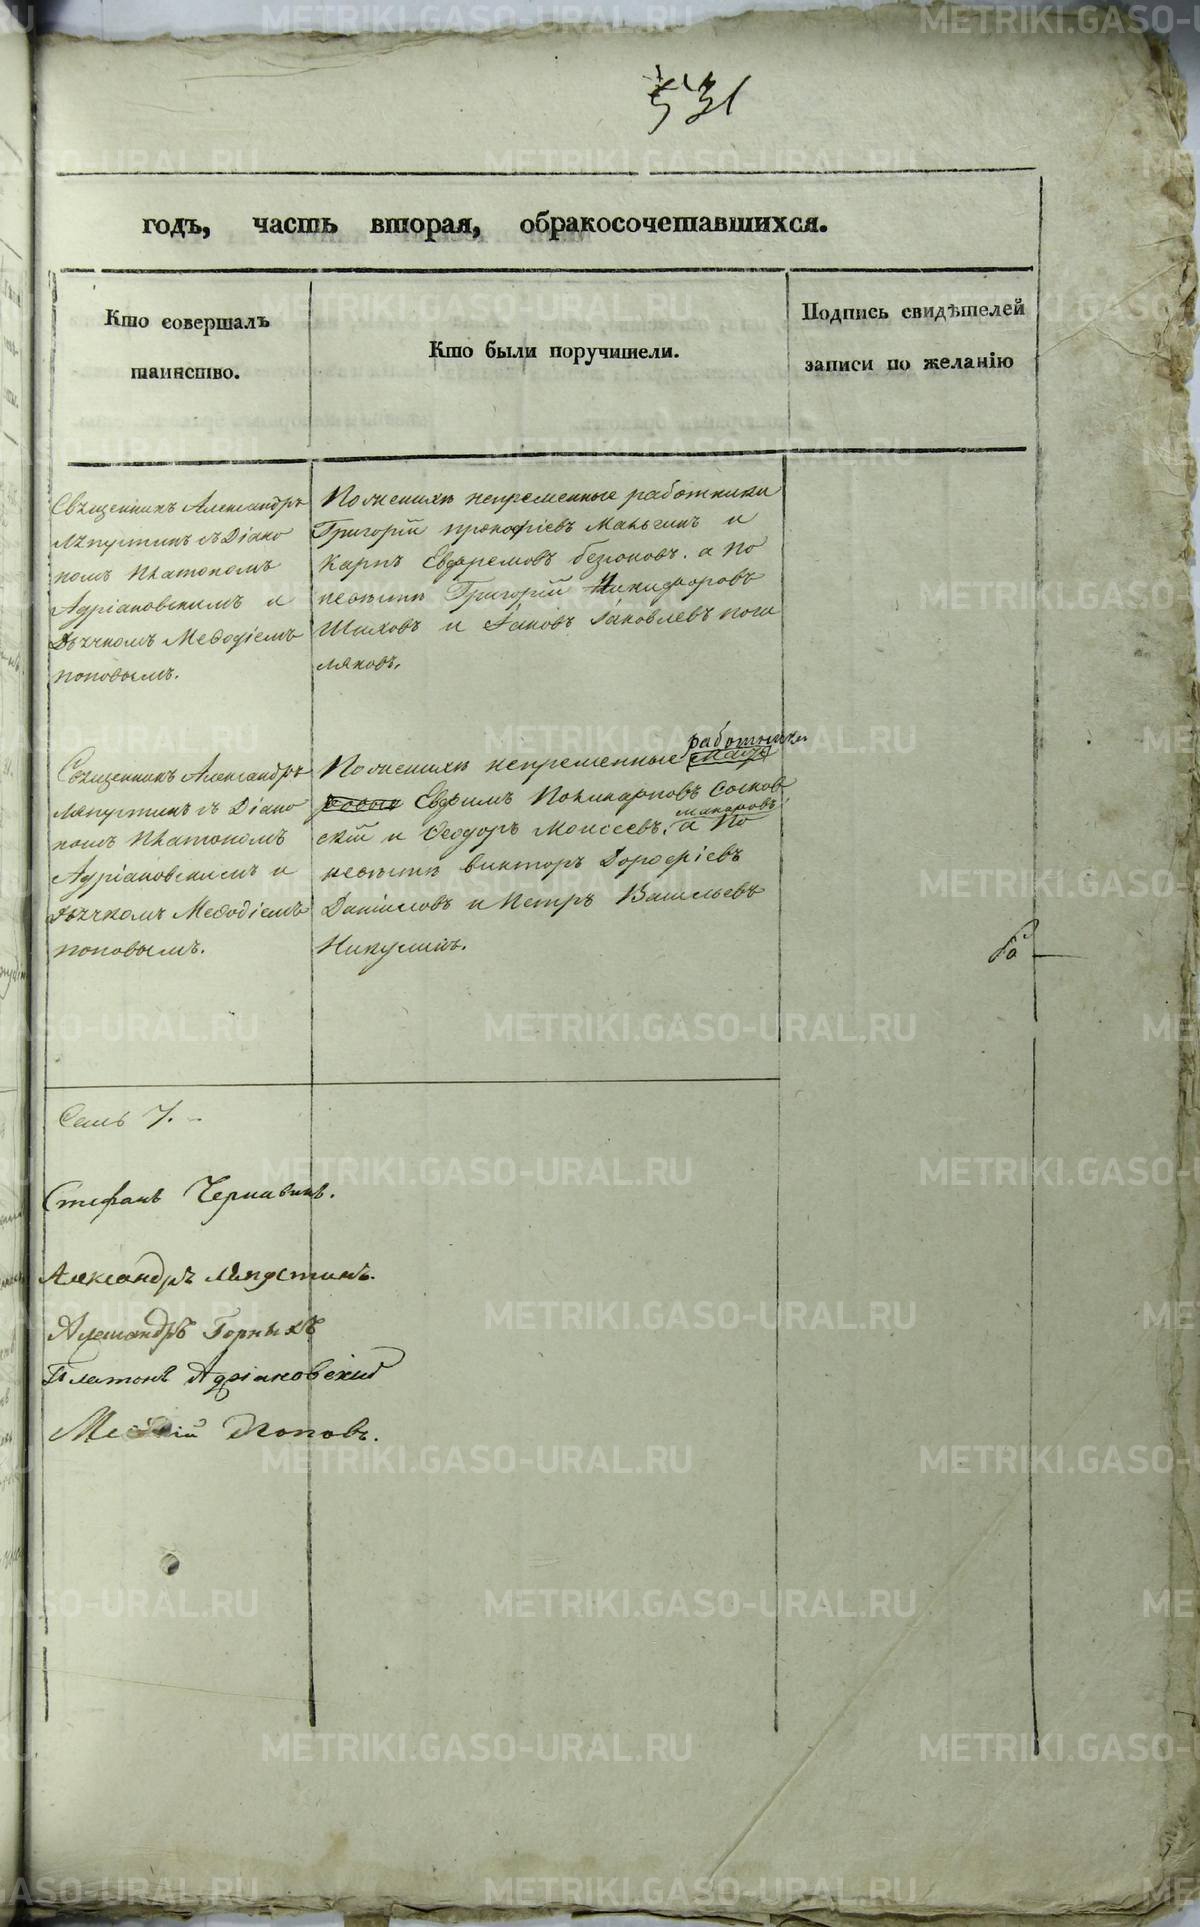 531
годъ, часть вторая, обракосочетавшихся.
Кто совершалъ
таинство.
Кто были поручители.
Подпись свидѣтелей
записи по желанію
Священникъ Александръ
Ляпустинъ съ Діако
номъ Платономъ
Адріановскимъ и
Дьячкомъ Меѳодіемъ
поповымъ.
По женихѣ непременные работники
Григорій прокофіевъ и
Карпъ Евфремовъ а по
невѣсте Григорій Никифоровъ
Шиховъ и Іаковъ Іаковлевъ поги
ляковъ.
Священникъ Александръ
Ляпустинъ съ Діако
номъ Платономъ
Адріановскимъ и
Дьячкомъ Меѳодіемъ
поповымъ.
работники
По женихѣ непременные
Евфимъ Поликарповъ Соснов
скій и Ѳеодоръ Моисеевъ макаровъ, а по
невѣсте викторъ Дорофіевъ
Даниловъ и Петръ Васильевъ
Никулинъ.
Семь 7.
Стефанъ Чернавинъ.
Александръ Ляпустинъ.
Александръ Горныхъ
Платонъ Адріановскій
Меѳодій Поповъ.
METRIKI.GASO-URAL.RU